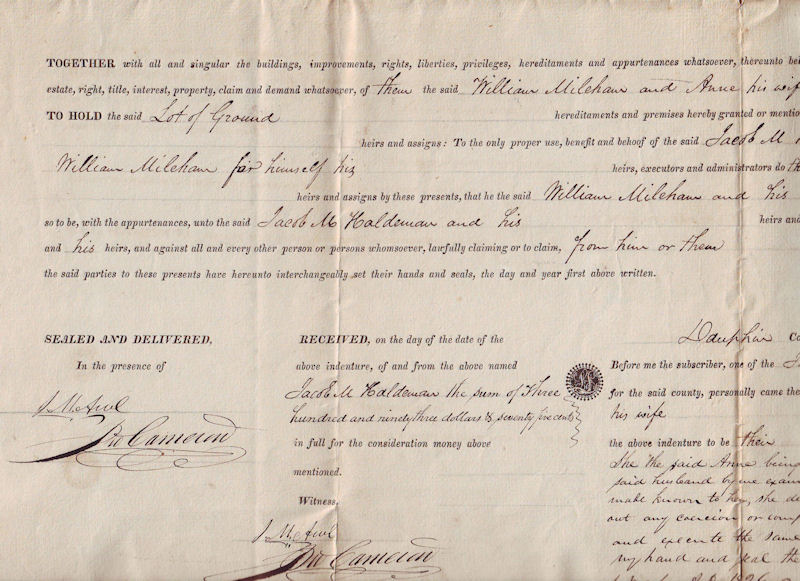 TOGETHER with all and singular the buildings, improvements, rights, liberties, privileges, hereditaments and appurtenances whatsoever, thereunto bel
estate, right, title, interest, property, claim and demand whatsoever, of them the said William Mileham and Anne his wif
TO HOLD the said Lot of Ground hereditaments and premises hereby granted or mentio
heirs and assigns: To the only proper use, benefit and behoof of the said Jacob M
William Mileham for himself his heirs, executors and administrators do th
heirs and assigns by these presents, that he the said William Mileham and his
so to be, with the appurtenances, unto the said Jacob M Haldeman and his heirs and
and his heirs, and against all and every other person or persons whomsoever, lawfully claiming or to claim, from him or them
the said parties to these presents have hereunto interchangeably set their hands and seals, the day and year first above written.
SEALED AND DELIVERED,
In the presence of
Cameron
RECEIVED, on the day of the date of the
above indenture, of and from the above named
Jacob M Haldeman the sum of Three
hundred and ninety three dollars & seventy five cents
in full for the consideration money above
mentioned.
Witness,
Cameron
Dauphin Co
Before me the subscriber, one of the
for the said county, personally came the
his wife
the above indenture to be their
She the said Anne being
said husband by me exam
made known to her, she de
out any coercion or comp
and execute the same
my hand and seal the